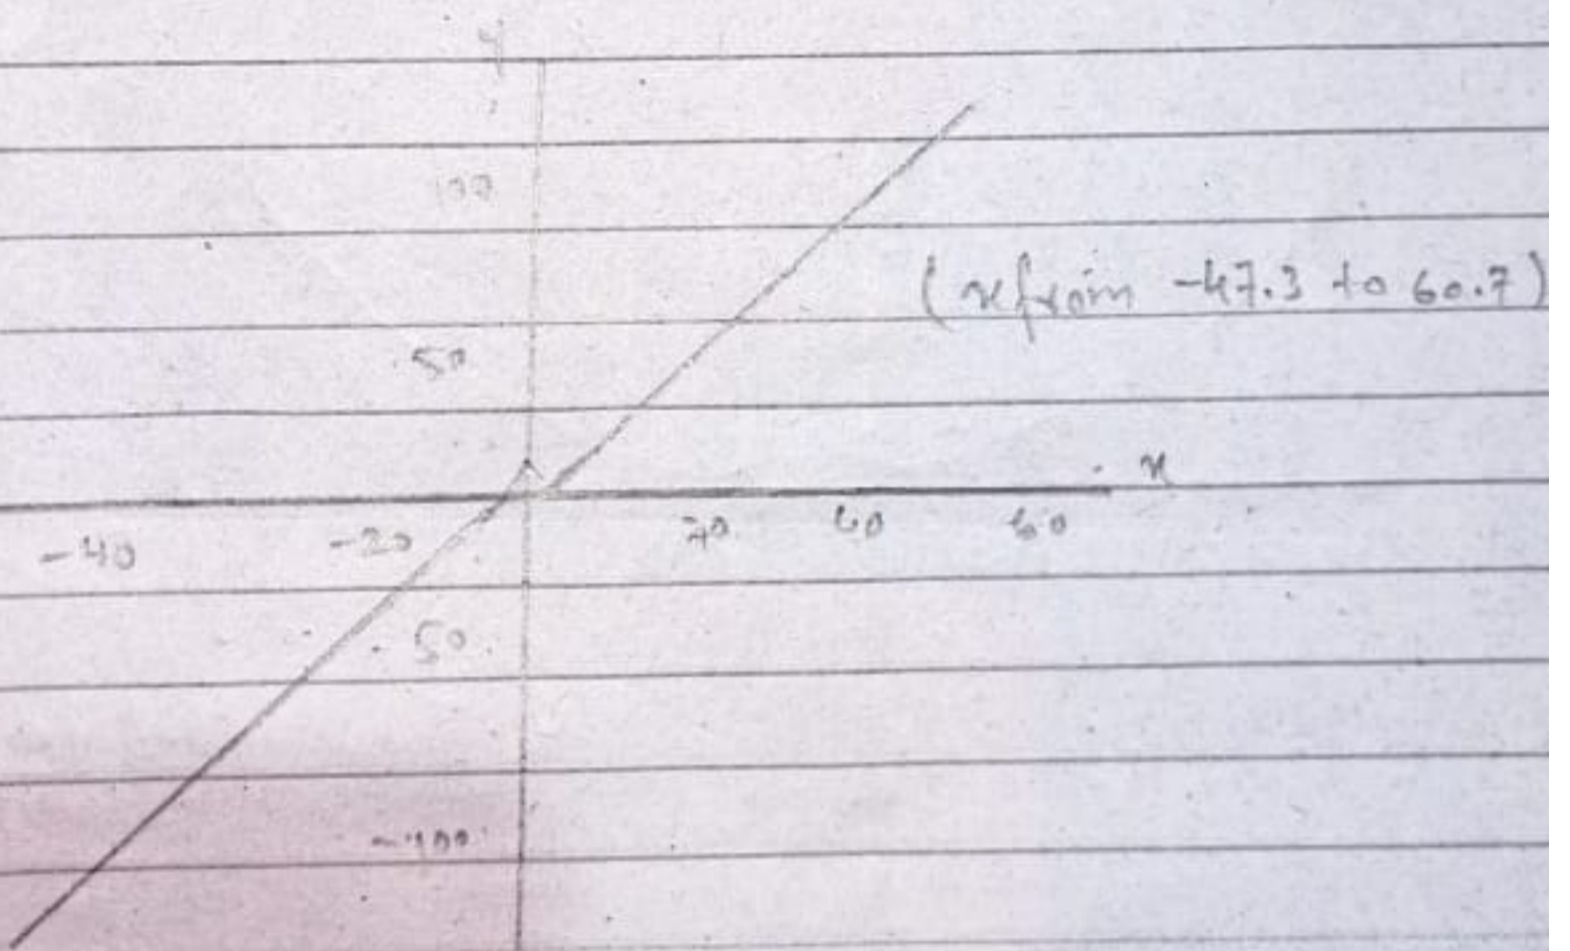 y
100
(x from -47.3 to 60.7)
50
x
-40 -20 20 40 60
-50
-100